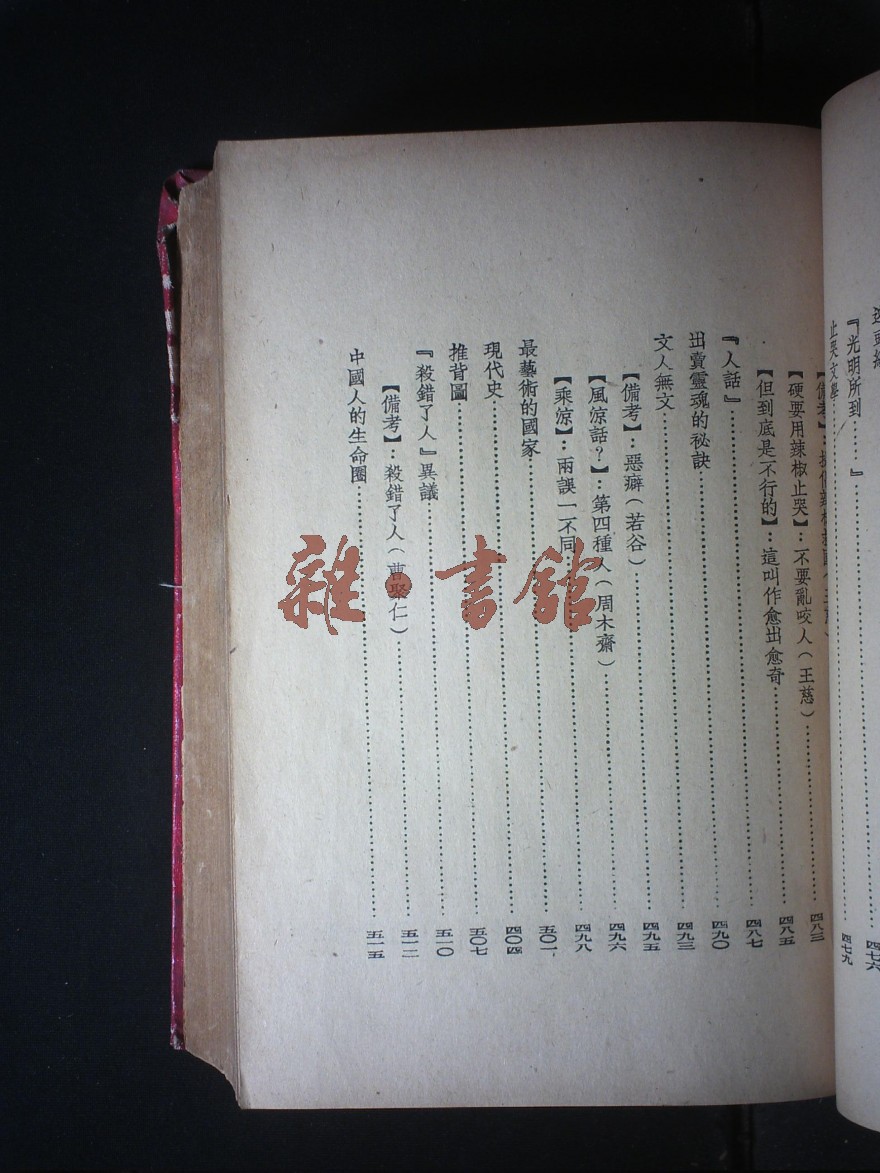 『光明所到……』……四七六
止哭文學……四七九
【備考】：……四八三
【硬要用辣椒止哭】：不要亂咬人（王慈）……四八五
【但到底是不行的】：這叫作愈出愈奇……四八七
『人話』……四九〇
出賣靈魂的秘訣……四九三
文人無文……四九五
【備考】：惡癖（若谷）……四九六
【風涼話？】：第四種人（周木齋）……四九八
【乘涼】：兩誤一不同……五〇一
最藝術的國家……四〇四
現代史……五〇七
推背圖……五一〇
『殺錯了人』異議……五一二
【備考】：殺錯了人（曹聚仁）……五一五
中國人的生命圈
雜·書館